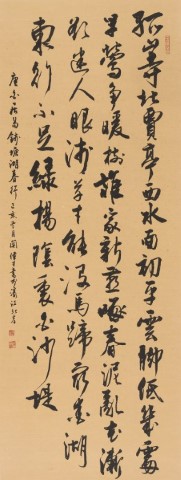 孤山寺北賈亭西水面初平雲腳低幾處
早鶯爭暖樹誰家新燕啄春泥亂花漸
欲迷人眼淺草才能沒馬蹄最愛湖
東行不足綠楊陰裏白沙堤
唐白居易錢塘湖春行 己亥